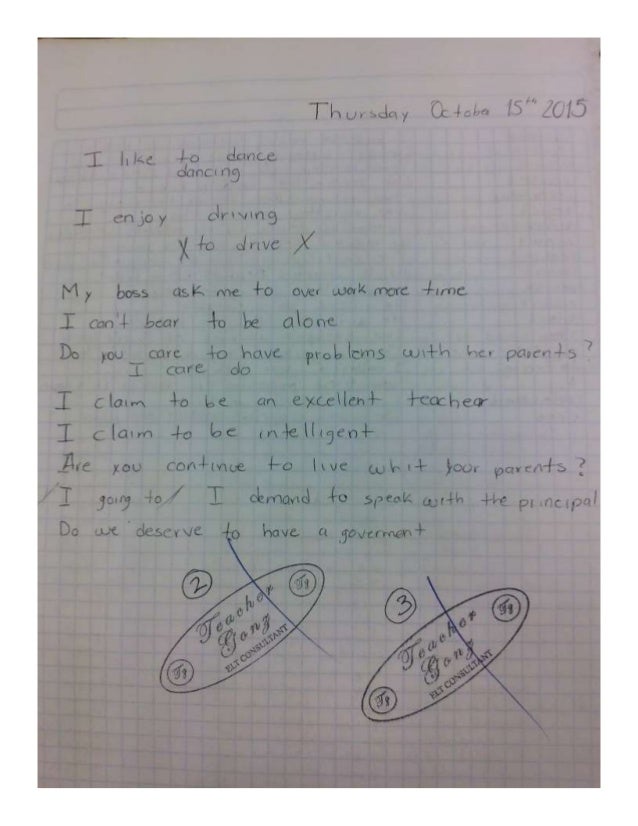 Thursday Octobe 15th 2015
I like to dance
dancing
I enjoy driving
X to drive X
My boss ask me to over work more time
I can't bear to be alone
Do you care to have problems with her parents?
I care do
I claim to be an excellent teachear
I claim to be intelligent
Are you continue to live whit your parents?
/I going to/ I demand to speak with the principal
Do we deserve to have a goverment
2
Tg
Teacher
Gonz
ELT CONSULTANT
Tg
3
Tg
Teacher
Gonz
ELT CONSULTANT
Tg